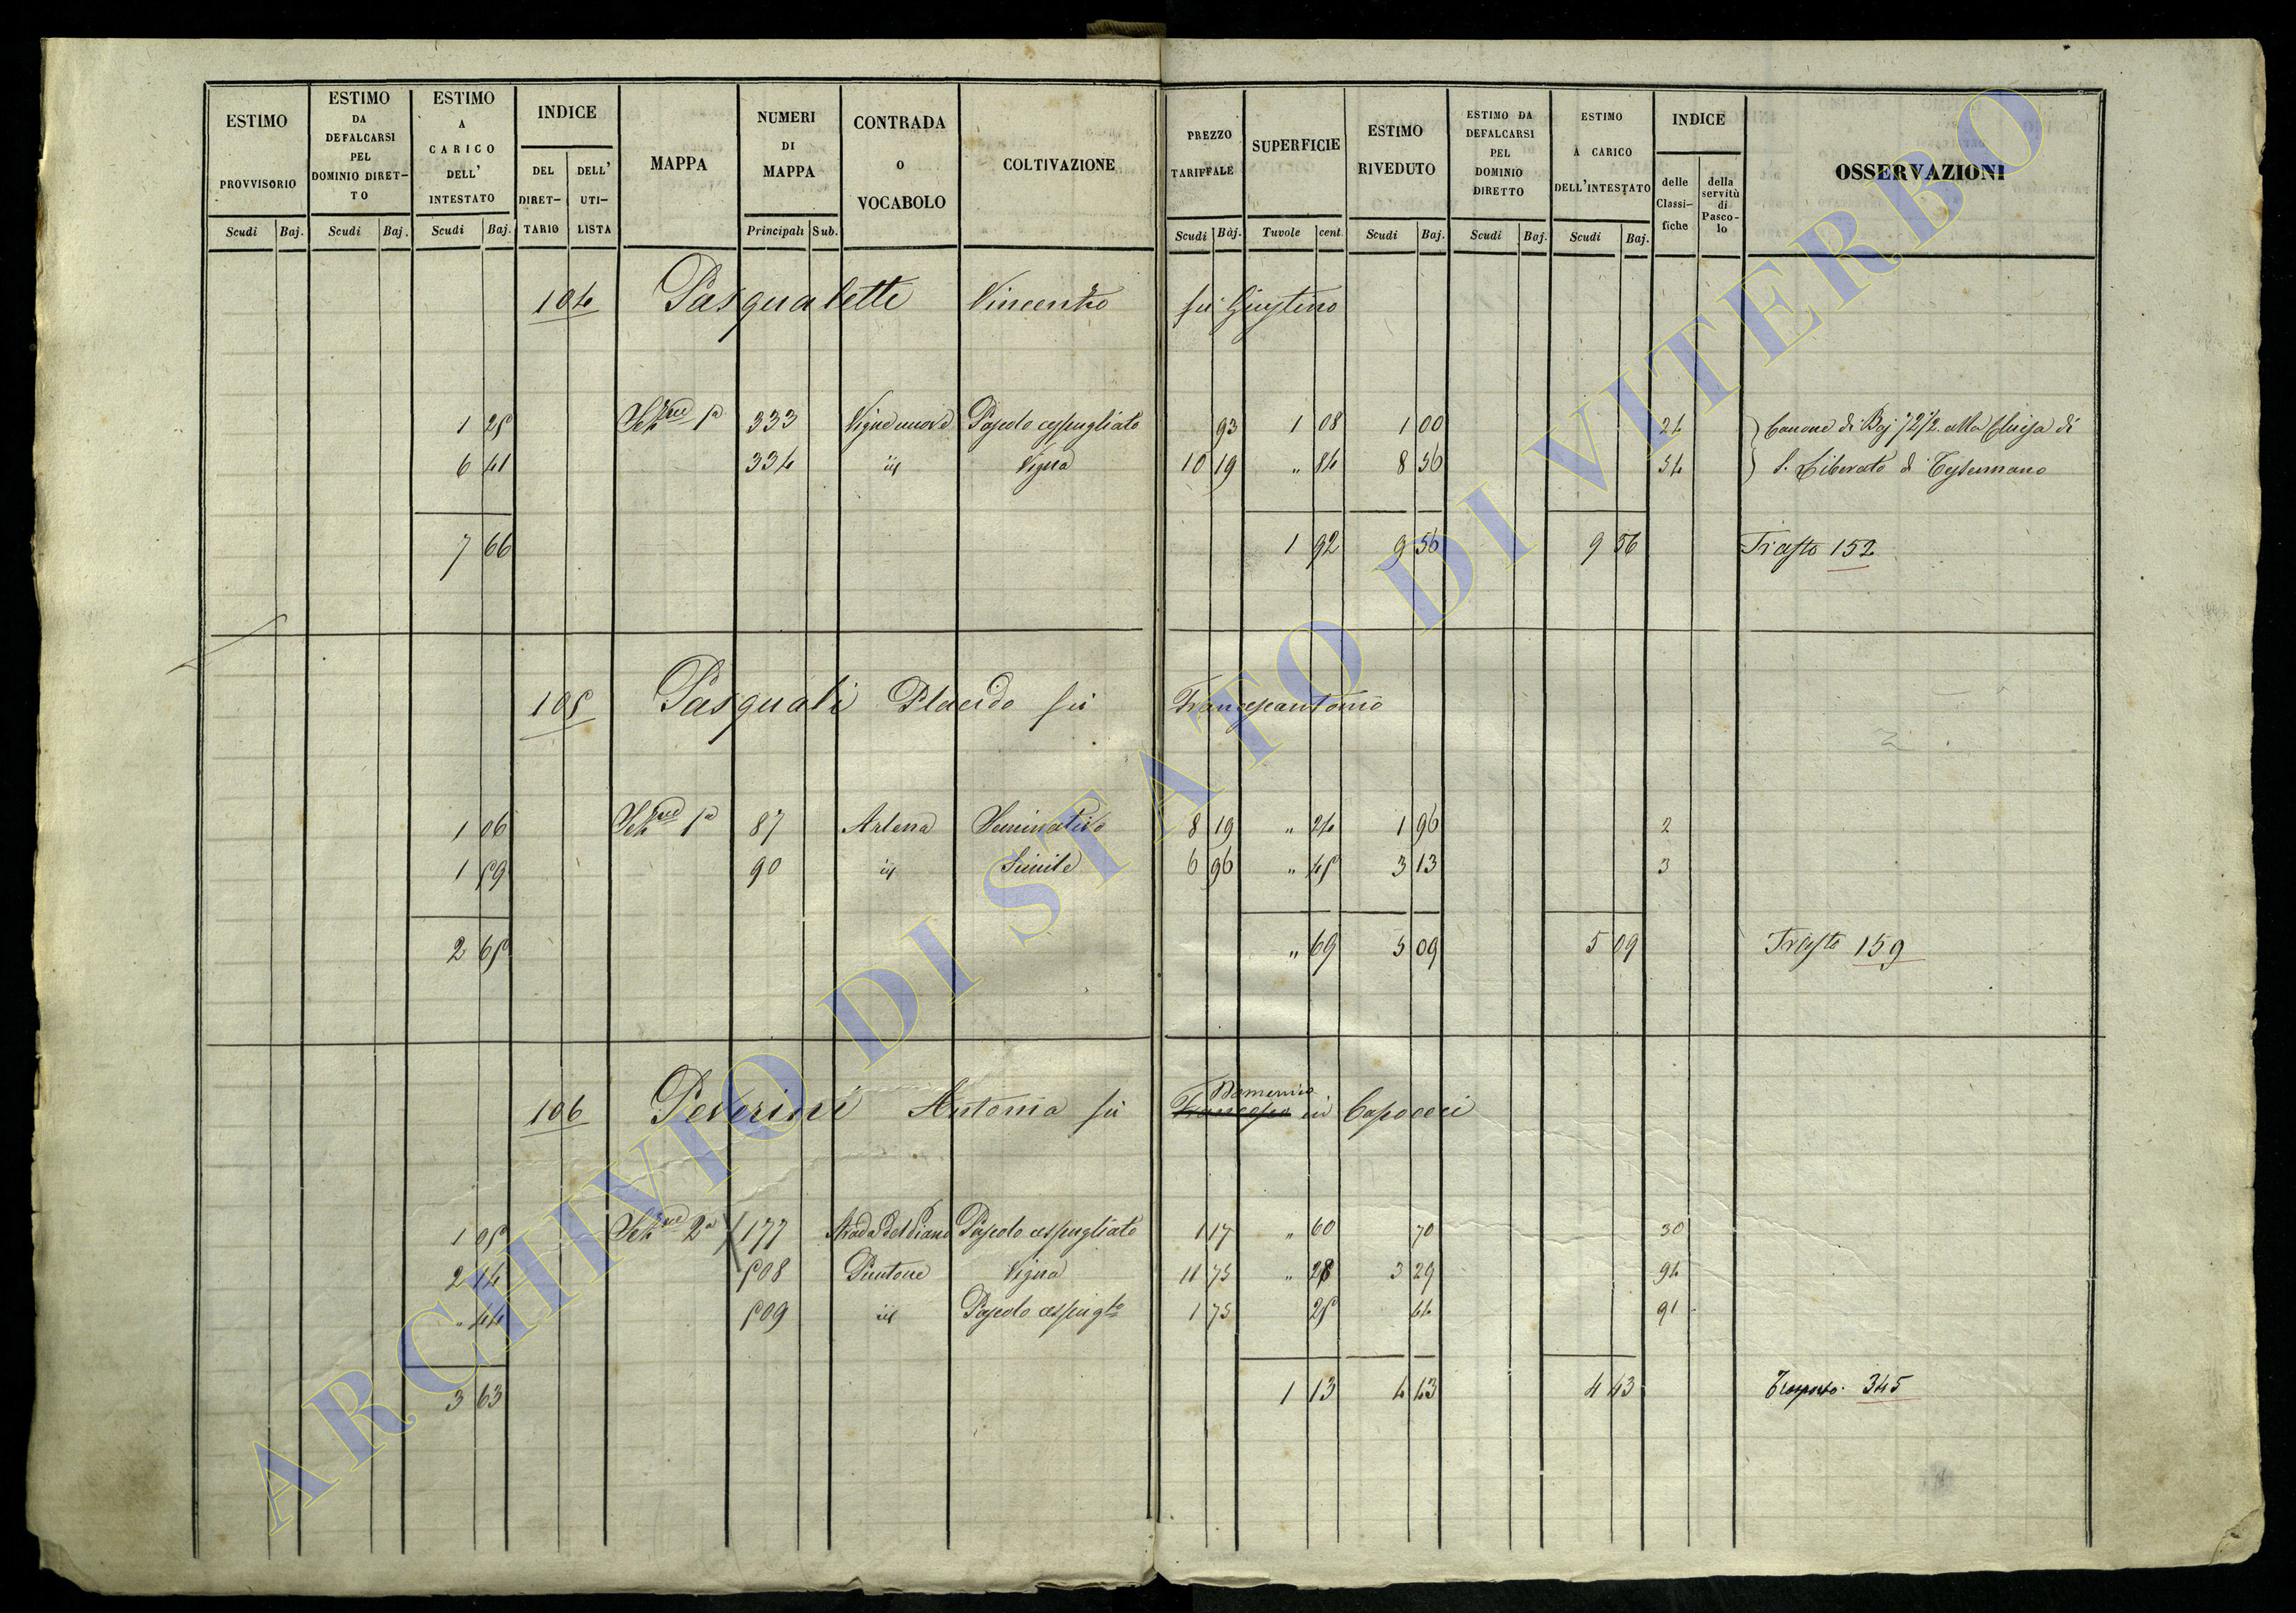 ESTIMO PROVVISORIO | ESTIMO DA DEFALCARSI PEL DOMINIO DIRETTO | ESTIMO A CARICO DELL' INTESTATO | INDICE DEL DIRETTARIO | DELL' UTILISTA | MAPPA | NUMERI DI MAPPA | CONTRADA O VOCABOLO | COLTIVAZIONE | PREZZO TARIFFALE | SUPERFICIE | ESTIMO RIVEDUTO | ESTIMO DA DEFALCARSI PEL DOMINIO DIRETTO | ESTIMO A CARICO DELL'INTESTATO | INDICE delle Classifiche | della servitù di Pascolo | OSSERVAZIONI
Scudi Baj. Scudi Baj. Scudi Baj. Principali Sub. Scudi Baj. Tavole cent. Scudi Baj. Scudi Baj. Scudi Baj.
104 Pasqualetti Vincenzo fù Giustino
1 25 Sezne 1a 333 Vigne nuove Pascolo cespugliato 93 1 08 1 00 24 Canone di Baj 72 1/2 alla Chiesa di
6 41 334 id Vigna 10 19 " 84 8 56 54 S. Liberato di Tessennano
7 66 1 92 9 56 9 56 Trasto 152
105 Pasquali Placido fù Francescantonio
1 06 Sezne 1a 87 Arlena Seminativo 8 19 " 24 1 96 2
1 59 90 id Simile 6 96 " 45 3 13 3
2 65 " 69 5 09 5 09 Trasto 159
Domenico
106 Peverini Antonia fù Francesco in Capocci
1 05 Sezne 2a 177 Strada del Piano Pascolo cespugliato 1 17 " 60 70 30
2 14 508 Puntone Vigna 11 75 " 28 3 29 94
" 44 509 id Pascolo cespugto 1 75 25 44 91
3 63 1 13 4 43 4 43 Trasporto 345
ARCHIVIO DI STATO DI VITERBO